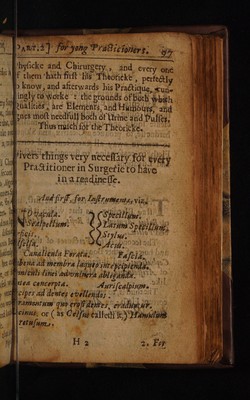 PART. 2] for yong Practitioners. 97
Physicke and Chirurgery, and every one
of them hath first his Theoricke, perfectly
to know, and afterwards his Practique, cun-
ningly to worke: the grounds of both which
Qualities, are Elements, and Humours, and
most needfull both of Urine and Pulses.
Thus much for the Theoricke.
Divers things very necessary for every
Practitioner in Surgerie to have
in a readinesse.
And first for Instruments, viz.
Speculum.
Scalpellum. Latum Specillum.
Stylus.
Acus.
Cunaliculus Forata. Fascia.
ad membra laqueo intercipienda.
ad vulnera abliganda.
concerpta. Auriscalpium.
ad dentes evellendos.
quo crassi dentes, eraduntur.
or (as Celsus calleth it,) Hamulum
retusum.
H 2 2. For